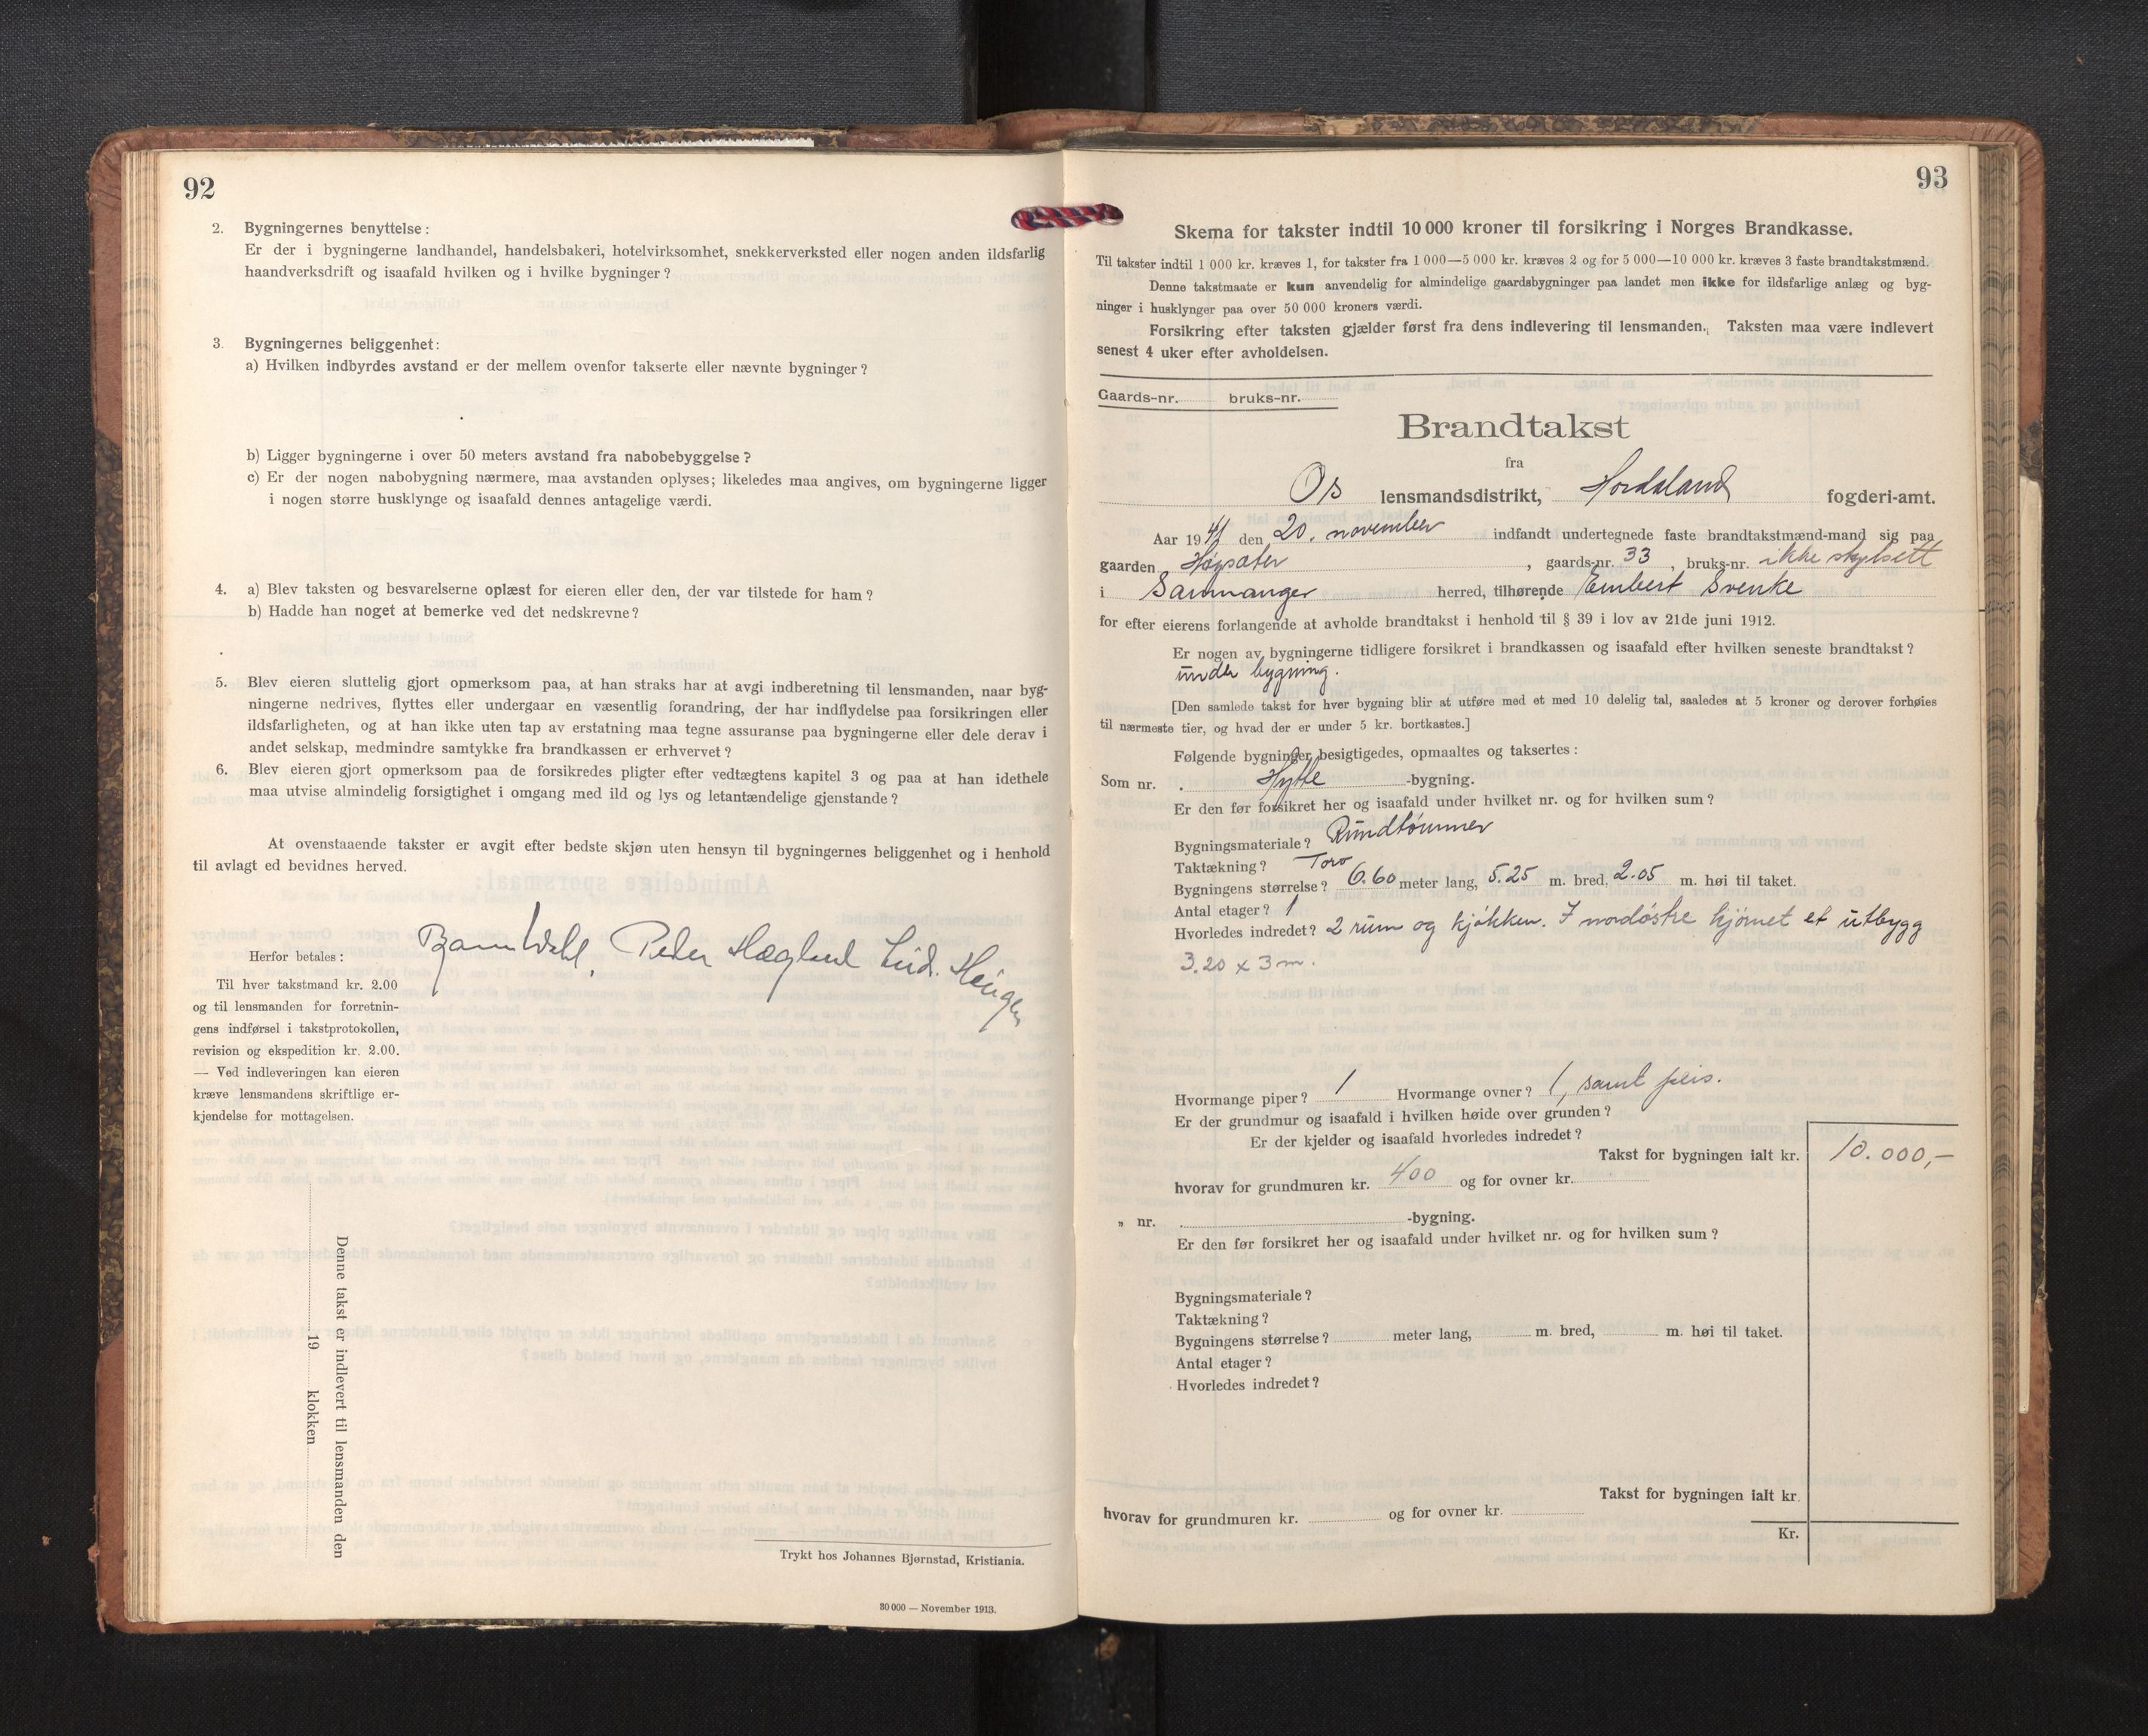 92
2. Bygningernes benyttelse:
Er der i bygningerne landhandel, handelsbakeri, hotelvirksomhet, snekkerverksted eller nogen anden ildsfarlig
haandverksdrift og isaafald hvilken og i hvilke bygninger?
3. Bygningernes beliggenhet:
a) Hvilken indbyrdes avstand er der mellem ovenfor takserte eller nævnte bygninger?
b) Ligger bygningerne i over 50 meters avstand fra nabobebyggelse?
c) Er der nogen nabobygning nærmere, maa avstanden oplyses; likeledes maa angives, om bygningerne ligger
i nogen større husklynge og isaafald dennes antagelige værdi.
4. a) Blev taksten og besvarelserne oplæst for eieren eller den, der var tilstede for ham?
b) Hadde han noget at bemerke ved det nedskrevne?
5. Blev eieren sluttelig gjort opmerksom paa, at han straks har at avgi indberetning til lensmanden, naar byg-
ningerne nedrives, flyttes eller undergaar en væsentlig forandring, der har indflydelse paa forsikringen eller
ildsfarligheten, og at han ikke uten tap av erstatning maa tegne assuranse paa bygningerne eller dele derav i
andet selskap, medmindre samtykke fra brandkassen er erhvervet?
6. Blev eieren gjort opmerksom paa de forsikredes pligter efter vedtægtens kapitel 3 og paa at han idethele
maa utvise almindelig forsigtighet i omgang med ild og lys og letantændelige gjenstande?
At ovenstaaende takster er avgit efter bedste skjøn uten hensyn til bygningernes beliggenhet og i henhold
til avlagt ed bevidnes herved.
Peder Hægland
Herfor betales:
Til hver takstmand kr. 2.00
og til lensmanden for forretnin-
gens indførsel i takstprotokollen,
revision og ekspedition kr. 2.00.
— Ved indleveringen kan eieren
kræve lensmandens skriftlige er-
kjendelse for mottagelsen.
Denne takst er indlevert til lensmanden den
19 klokken
Trykt hos Johannes Bjørnstad, Kristiania.
30 000 — November 1913.
93
Skema for takster indtil 10 000 kroner til forsikring i Norges Brandkasse.
Til takster indtil 1 000 kr. kræves 1, for takster fra 1 000—5 000 kr. kræves 2 og for 5 000—10 000 kr. kræves 3 faste brandtakstmænd.
Denne takstmaate er kun anvendelig for almindelige gaardsbygninger paa landet men ikke for ildsfarlige anlæg og byg-
ninger i husklynger paa over 50 000 kroners værdi.
Forsikring efter taksten gjælder først fra dens indlevering til lensmanden. Taksten maa være indlevert
senest 4 uker efter avholdelsen.
Gaards-nr. bruks-nr.
Brandtakst
fra
Os lensmandsdistrikt, Hordaland fogderi-amt.
Aar 1941 den 20. november indfandt undertegnede faste brandtakstmænd-mand sig paa
gaarden Høysæter, gaards-nr. 33, bruks-nr. ikke skyldsett
i Samnanger herred, tilhørende Embert Svenke
for efter eierens forlangende at avholde brandtakst i henhold til § 39 i lov av 21de juni 1912.
Er nogen av bygningerne tidligere forsikret i brandkassen og isaafald efter hvilken seneste brandtakst?
under bygning.
[Den samlede takst for hver bygning blir at utføre med et med 10 delelig tal, saaledes at 5 kroner og derover forhøies
til nærmeste tier, og hvad der er under 5 kr. bortkastes.]
Følgende bygninger besigtigedes, opmaaltes og taksertes:
Som nr. Hytte -bygning.
Er den før forsikret her og isaafald under hvilket nr. og for hvilken sum?
Bygningsmateriale? Rundtømmer
Taktækning? Torv
Bygningens størrelse? 6.60 meter lang, 5.25 m. bred, 2.05 m. høi til taket.
Antal etager? 1
Hvorledes indredet? 2 rum og kjøkken. I nordøstre hjørnet et utbygg
3.20 x 3 m.
Hvormange piper? 1 Hvormange ovner? 1, samt peis.
Er der grundmur og isaafald i hvilken høide over grunden?
Er der kjelder og isaafald hvorledes indredet?
Takst for bygningen ialt kr. 10.000,-
hvorav for grundmuren kr. 400 og for ovner kr.
„ nr. -bygning.
Er den før forsikret her og isaafald under hvilket nr. og for hvilken sum?
Bygningsmateriale?
Taktækning?
Bygningens størrelse? meter lang, m. bred, m. høi til taket.
Antal etager?
Hvorledes indredet?
Takst for bygningen ialt kr.
hvorav for grundmuren kr. og for ovner kr.
Kr.